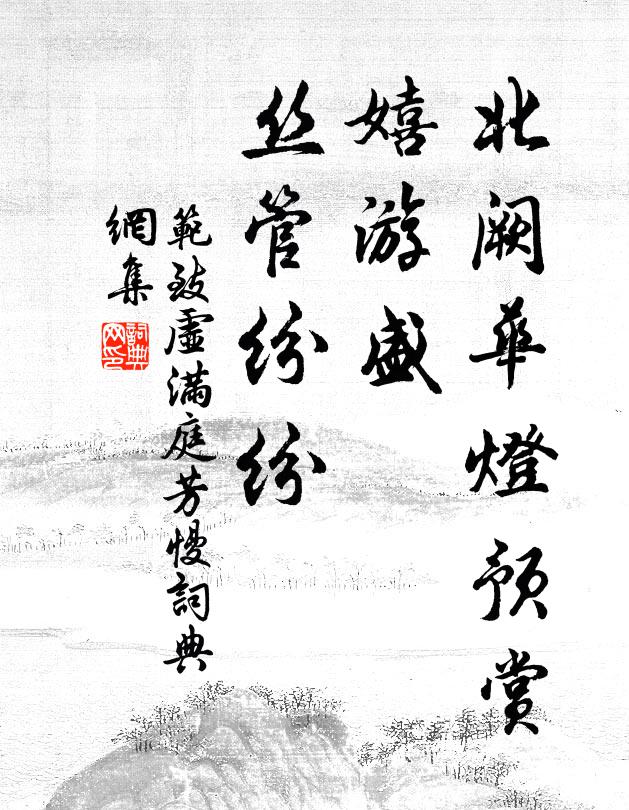 北阙華燈预赏
嬉游盛
丝管纷纷
範致虛滿庭芳慢詞典
網集
詞典
网印